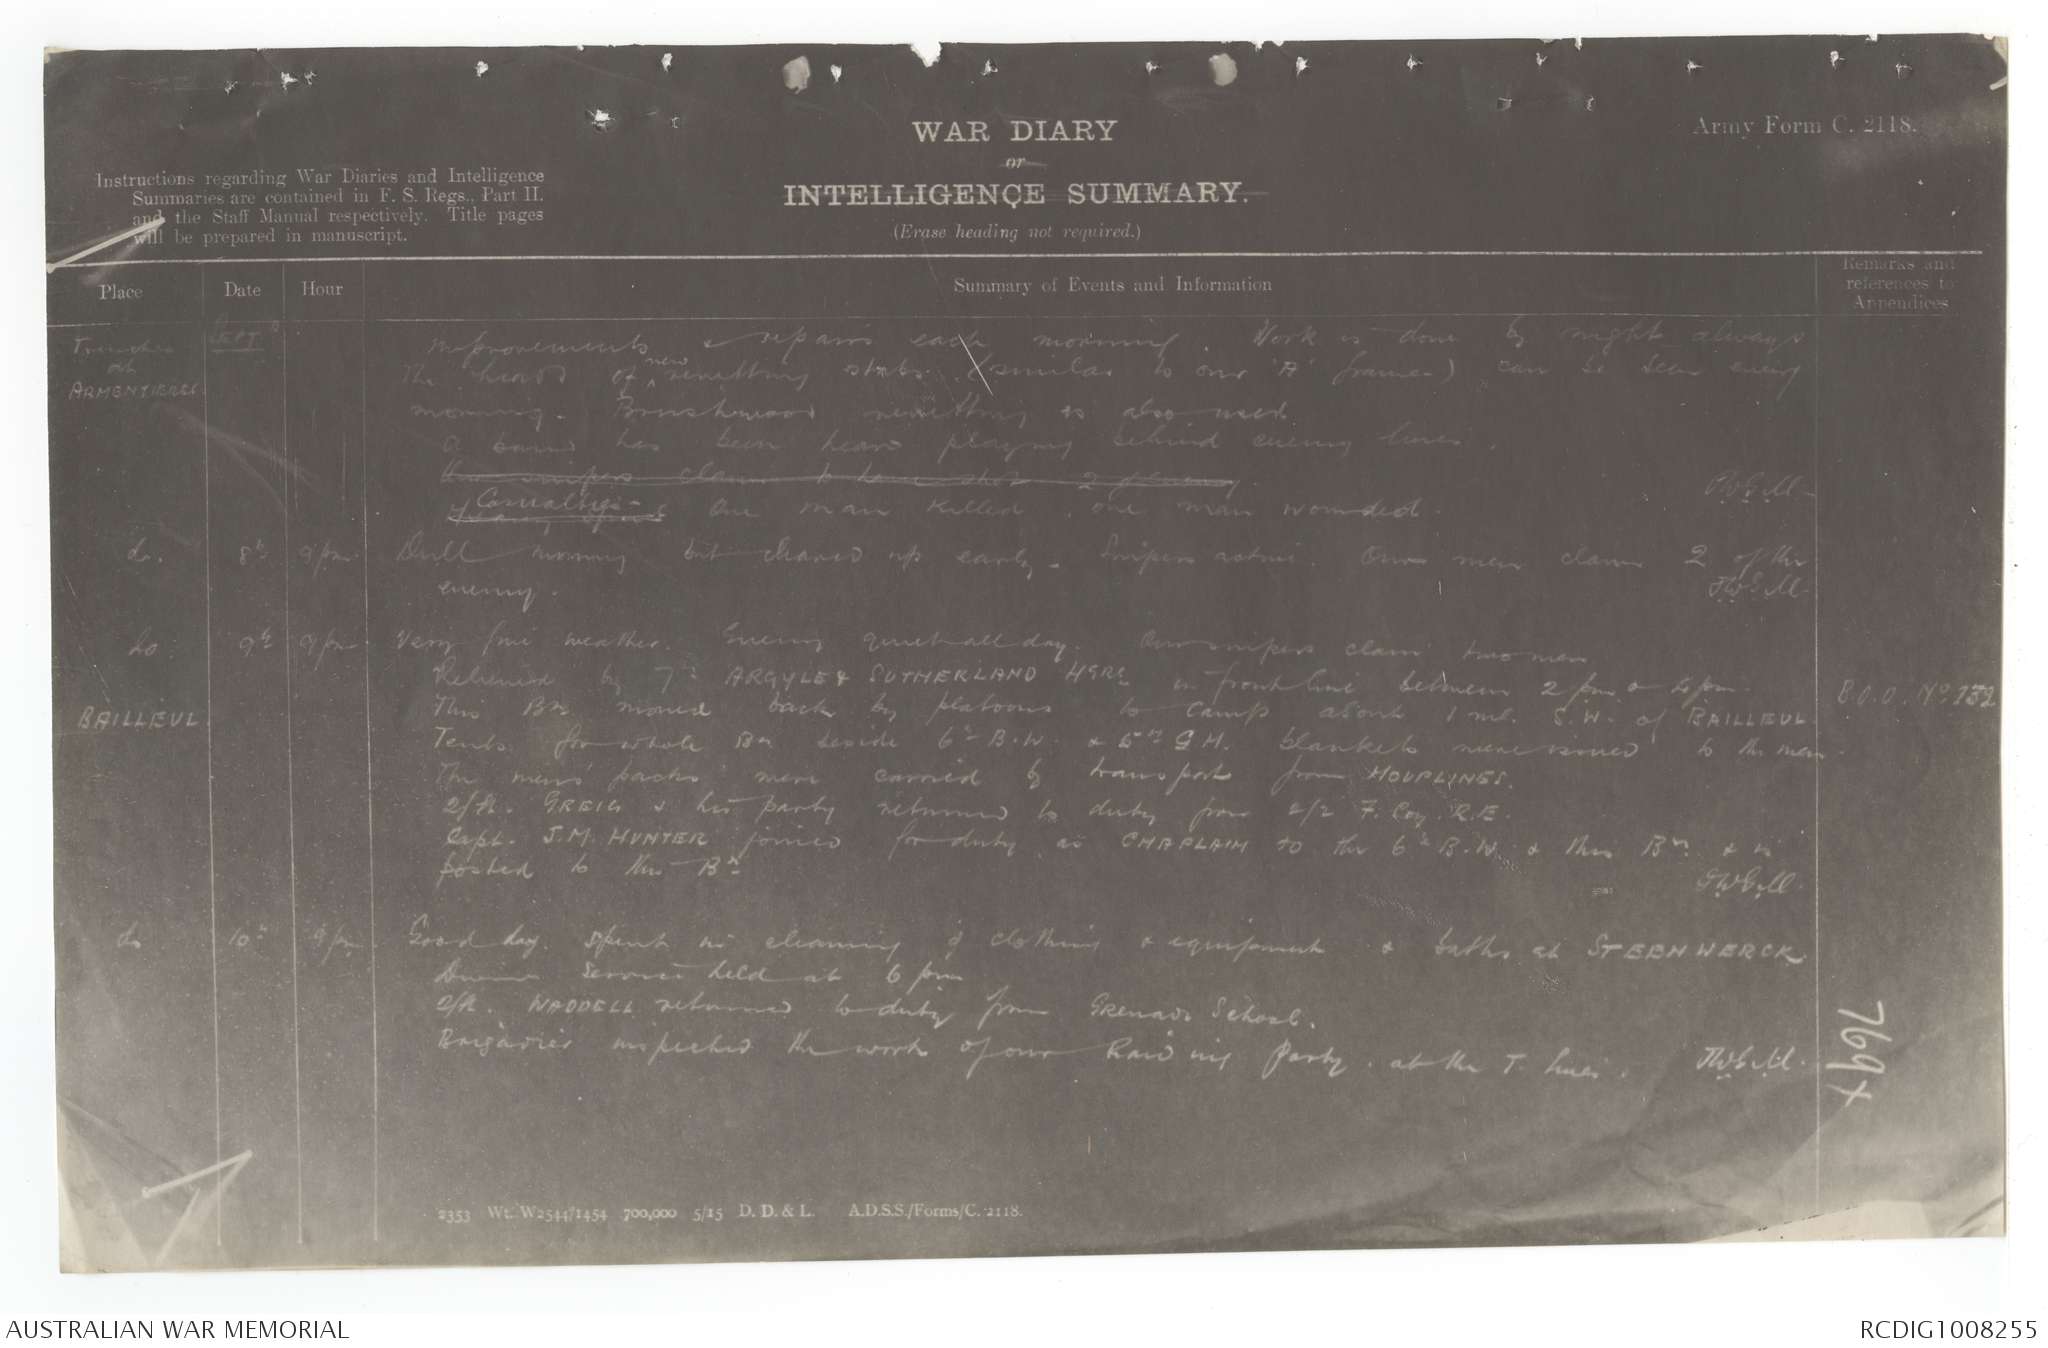 WAR DIARY
or
INTELLIGENCE SUMMARY.
(Erase heading not required.)
Army Form C. 2118.
Instructions regarding War Diaries and Intelligence
Summaries are contained in F. S. Regs., Part II.
and the Staff Manual respectively. Title pages
will be prepared in manuscript.
Place Date Hour Summary of Events and Information Remarks and references to Appendices
Trenches at ARMENTIERES Sept
improvements & repairs each morning. Work is done by night always
The heads of new revetting stakes (similar to our 'A' frames) can be seen every
morning. Brushwood revetting is also used.
A band has been heard playing behind enemy lines.
Our snipers claim to have shot 2 of enemy
Casualties - One man killed, one man wounded.
do. 8th 9 pm. Dull morning but cleared up early. Snipers active. Our men claim 2 of the
enemy.
do 9th 9 pm Very fine weather. Enemy quiet all day. Our snipers claim two men
Relieved by 7th ARGYLE & SUTHERLAND HGRS in front line between 2 pm & 4 pm.
BAILLEUL. This Bn moved back by platoons to camp about 1 ml. S.W. of BAILLEUL. B.O.O. No 132
Tents for whole Bn beside 6th B.W. & 5th G.H. blankets were issued to the men.
The mens' packs were carried by transport from HOUPLINES.
2/Lt. GREIG & his party returned to duty from 2/2 F. Coy. R.E.
Capt. J.M. HUNTER joined for duty as CHAPLAIN to the 6th B.W. & this Bn. & is
posted to this Bn
do 10th 9 pm Good day. Spent in cleaning of clothing & equipment & baths at STEENWERCK
Divine Service held at 6 pm
2/Lt. WADDELL returned to duty from Grenade School.
Brigadier inspected the work of our Raiding Party. at the T. lines.
769+
2353 Wt. W2544/1454 700,000 5/15 D. D. & L. A.D.S.S./Forms/C. 2118.
AUSTRALIAN WAR MEMORIAL
RCDIG1008255